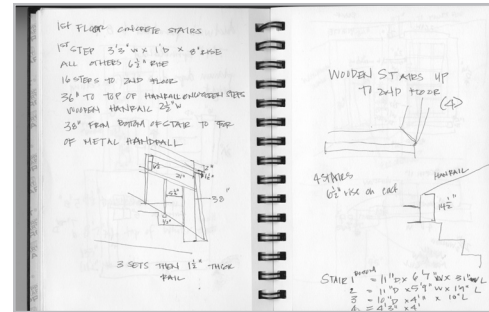 1ST FLOOR CONCRETE STAIRS
1ST STEP 3'3" W x 1'D x 8" RISE
ALL OTHERS 6½" RISE
16 STEPS TO 2ND FLOOR
36" TO TOP OF HANRAIL ON STEPS
WOODEN HANRAIL 2½" W
38" FROM BOTTOM OF STAIR TO TOP
OF METAL HANDRAIL
38"
3 SETS THEN 1½" THICK
RAIL
WOODEN STAIRS UP
TO 2ND FLOOR
(4)
4 STAIRS
6½" rise on each
HANRAIL
14½"
STAIR 1 = 11"D x 6'
2 = 11"D x 5'9" W x
3 = 10"D x 4' x 10" L
4 = 4'3" x 4'